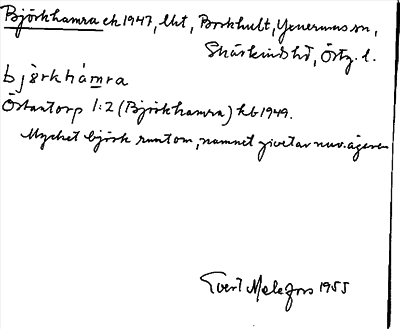 Björkhamra ek 1947, lht, Borkhult, Yxnerums sn,
Skärkinds hd, Östg. l.
bjö̀rkhámra
Östantorp 1:2 (Björkhamra) kb 1949.
Mycket björk runtom, namnet givet av nuv. ägaren
Evert Melefors 1955